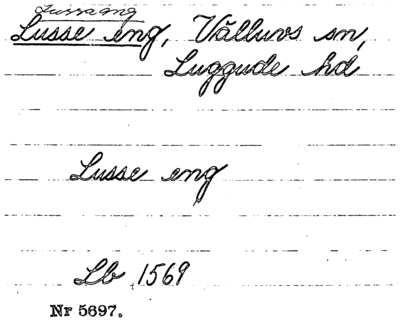 Lussäng
Lusse eng, Välluvs sn,
Luggude hd
Lusse eng
Lb 1569
Nr 5697.